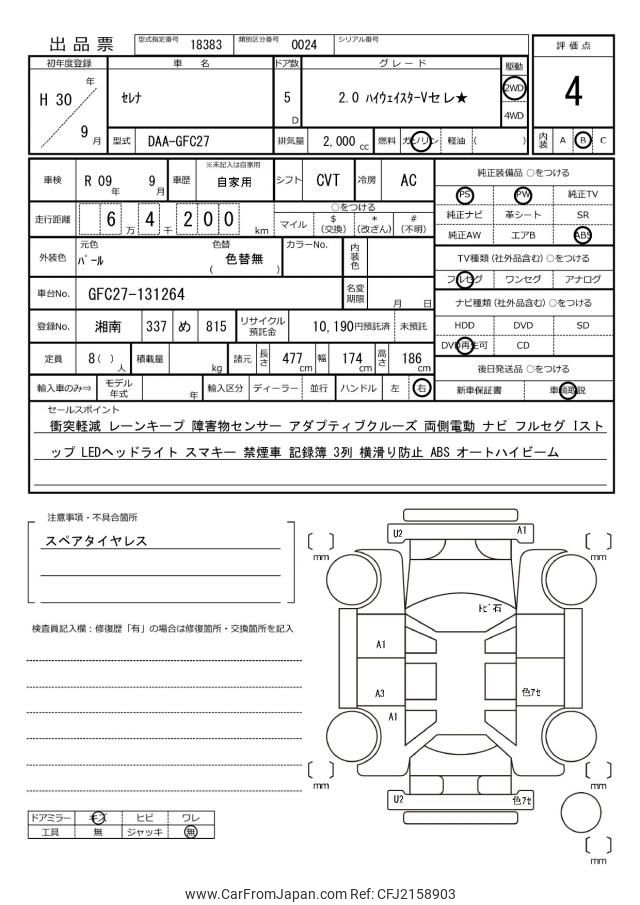 出品票
型式指定番号 18383 類別区分番号 0024 シリアル番号
評価点
4
内装 A B C
初年度登録 車名 ドア数 グレード 駆動
H 30 年 9 月
セレナ
5 D
2.0 ハイウェイスターVセレ★
2WD
4WD
型式 DAA-GFC27 排気量 2,000 cc 燃料 ガソリン 軽油 ( )
車検 R 09 年 9 月 車歴 ※未記入は自家用 自家用 シフト CVT 冷房 AC
走行距離 6 万 4 千 2 0 0 km
○をつける
マイル $ (交換) * (改ざん) # (不明)
外装色 元色 パール 色替 ( 色替無 ) カラーNo. 内装色
車台No. GFC27-131264 名変期限 月 日
登録No. 湘南 337 め 815 リサイクル預託金 10,190円預託済 未預託
定員 8 ( ) 人 積載量 kg 諸元 長さ 477 cm 幅 174 cm 高さ 186 cm
輸入車のみ⇒ モデル年式 年 輸入区分 ディーラー 並行 ハンドル 左 右
純正装備品 ○をつける
PS PW 純正TV
純正ナビ 革シート SR
純正AW エアB ABS
TV種類 (社外品含む) ○をつける
フルセグ ワンセグ アナログ
ナビ種類 (社外品含む) ○をつける
HDD DVD SD
DVD再生可 CD
後日発送品 ○をつける
新車保証書 車輌取説
セールスポイント
衝突軽減 レーンキープ 障害物センサー アダプティブクルーズ 両側電動 ナビ フルセグ Iスト
ップ LEDヘッドライト スマキー 禁煙車 記録簿 3列 横滑り防止 ABS オートハイビーム
注意事項・不具合箇所
スペアタイヤレス
検査員記入欄：修復歴「有」の場合は修復箇所・交換箇所を記入
U2 A1
mm mm
トビ石
A1
A3 色アセ
A1
mm mm
U2 色アセ
mm
ドアミラー キズ ヒビ ワレ
工具 無 ジャッキ 無
www.CarFromJapan.com Ref: CFJ2158903